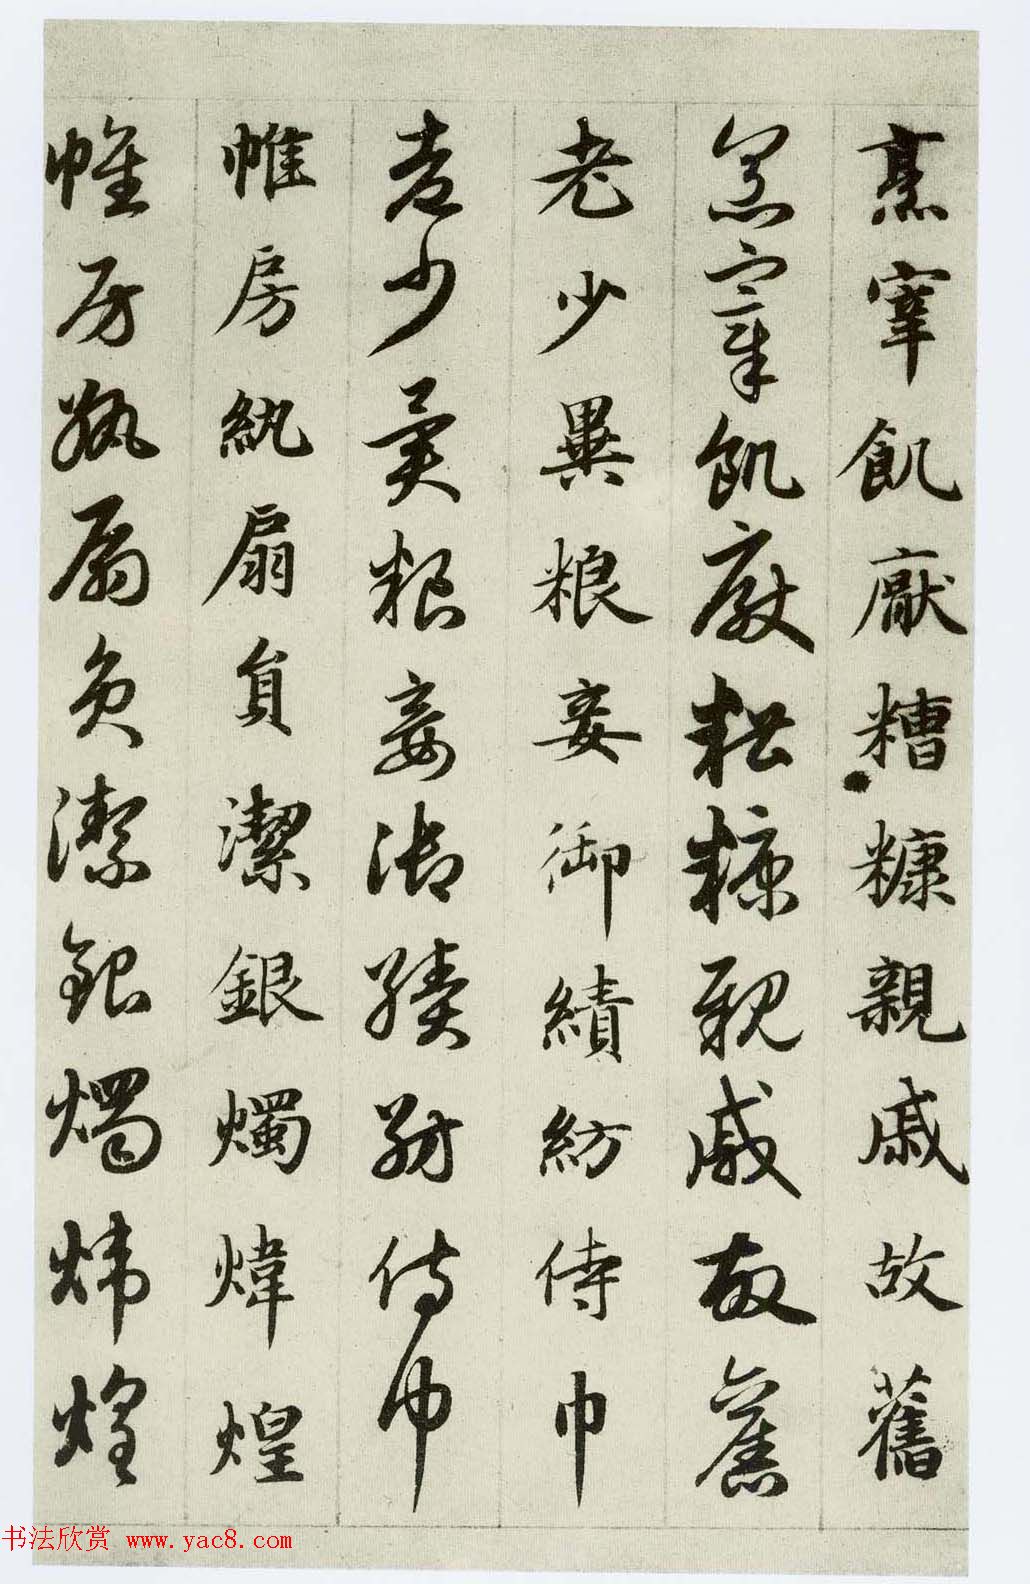 烹宰飢厭糟糠親戚故舊
烹宰飢厭糟糠親戚故舊
老少異粮妾御績紡侍巾
老少異粮妾御績紡侍巾
帷房紈扇員潔銀燭煒煌
帷房紈扇員潔銀燭煒煌
书法欣赏 www.yac8.com